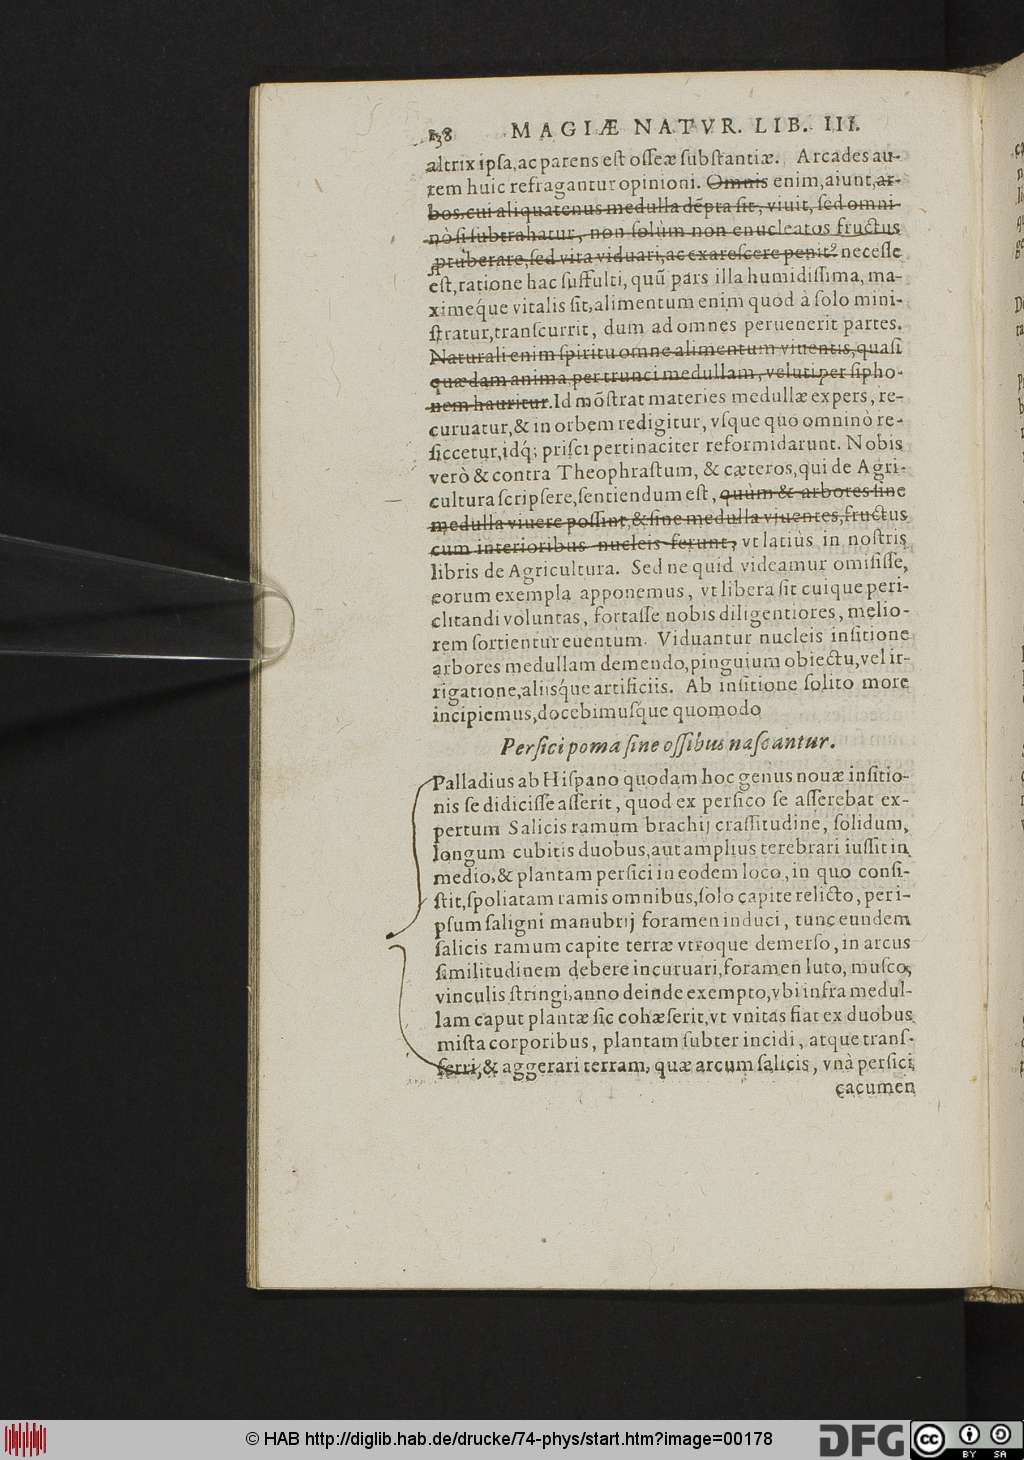 138 MAGIÆ NATVR. LIB. III.
altrix ipſa, ac parens eſt oſſeæ ſubſtantiæ. Arcades au-
tem huic refragantur opinioni. Omnis enim, aiunt, ar-
bos, cui aliquatenus medulla dẽpta ſit, viuit, ſed omni-
nò ſi ſubtrahatur, non ſolùm non enucleatos fructus
ꝓtuberare, ſed vita viduari, ac exareſcere penitꝰ neceſſe
eſt, ratione hac ſuffulti, quũ pars illa humidiſſima, ma-
ximeq́ue vitalis ſit, alimentum enim quod à ſolo mini-
ſtratur, tranſcurrit, dum ad omnes peruenerit partes.
Naturali enim ſpiritu omne alimentum viuentis, quaſi
quædam anima, per trunci medullam, veluti per ſipho-
nem hauritur. Id mõſtrat materies medullæ expers, re-
curuatur, & in orbem redigitur, vſque quo omninò re-
ſiccetur, idq́; priſci pertinaciter reformidarunt. Nobis
verò & contra Theophraſtum, & cæteros, qui de Agri-
cultura ſcripſere, ſentiendum eſt, quùm & arbores ſine
medulla viuere poſſint, & ſine medulla viuentes, fructus
cum interioribus nucleis ferunt, vt latiùs in noſtris
libris de Agricultura. Sed ne quid videamur omiſiſſe,
eorum exempla apponemus, vt libera ſit cuique peri-
clitandi voluntas, fortaſſe nobis diligentiores, melio-
rem ſortientur euentum. Viduantur nucleis inſitione
arbores medullam demendo, pinguium obiectu, vel ir-
rigatione, aliisq́ue artificiis. Ab inſitione ſolito more
incipiemus, docebimuſque quomodo
Perſici poma ſine oſſibus naſcantur.
Palladius ab Hiſpano quodam hoc genus nouæ inſitio-
nis ſe didiciſſe aſſerit, quod ex perſico ſe aſſerebat ex-
pertum Salicis ramum brachij craſſitudine, ſolidum,
longum cubitis duobus, aut amplius terebrari iuſſit in
medio, & plantam perſici in eodem loco, in quo conſi-
ſtit, ſpoliatam ramis omnibus, ſolo capite relicto, per i-
pſum ſaligni manubrij foramen induci, tunc eundem
ſalicis ramum capite terræ vtroque demerſo, in arcus
ſimilitudinem debere incuruari, foramen luto, muſco,
vinculis ſtringi, anno deinde exempto, vbi infra medul-
lam caput plantæ ſic cohæſerit, vt vnitas fiat ex duobus
miſta corporibus, plantam ſubter incidi, atque tranſ-
ferri, & aggerari terram, quæ arcum ſalicis, vnà perſici
cacumen
© HAB http://diglib.hab.de/drucke/74-phys/start.htm?image=00178
DFG
cc
BY SA